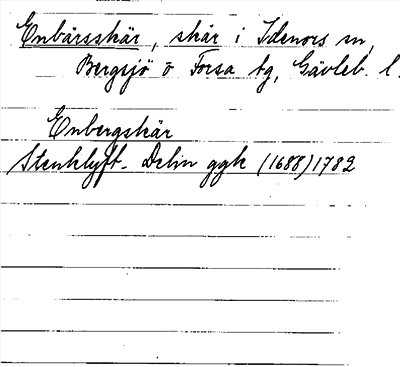 Enbärsskär, skär i Idenors sn,
Bergsjö o Forsa tg, Gävleb. l.
Enbergskär
Stenklyft- Delin ggk (1688) 1782